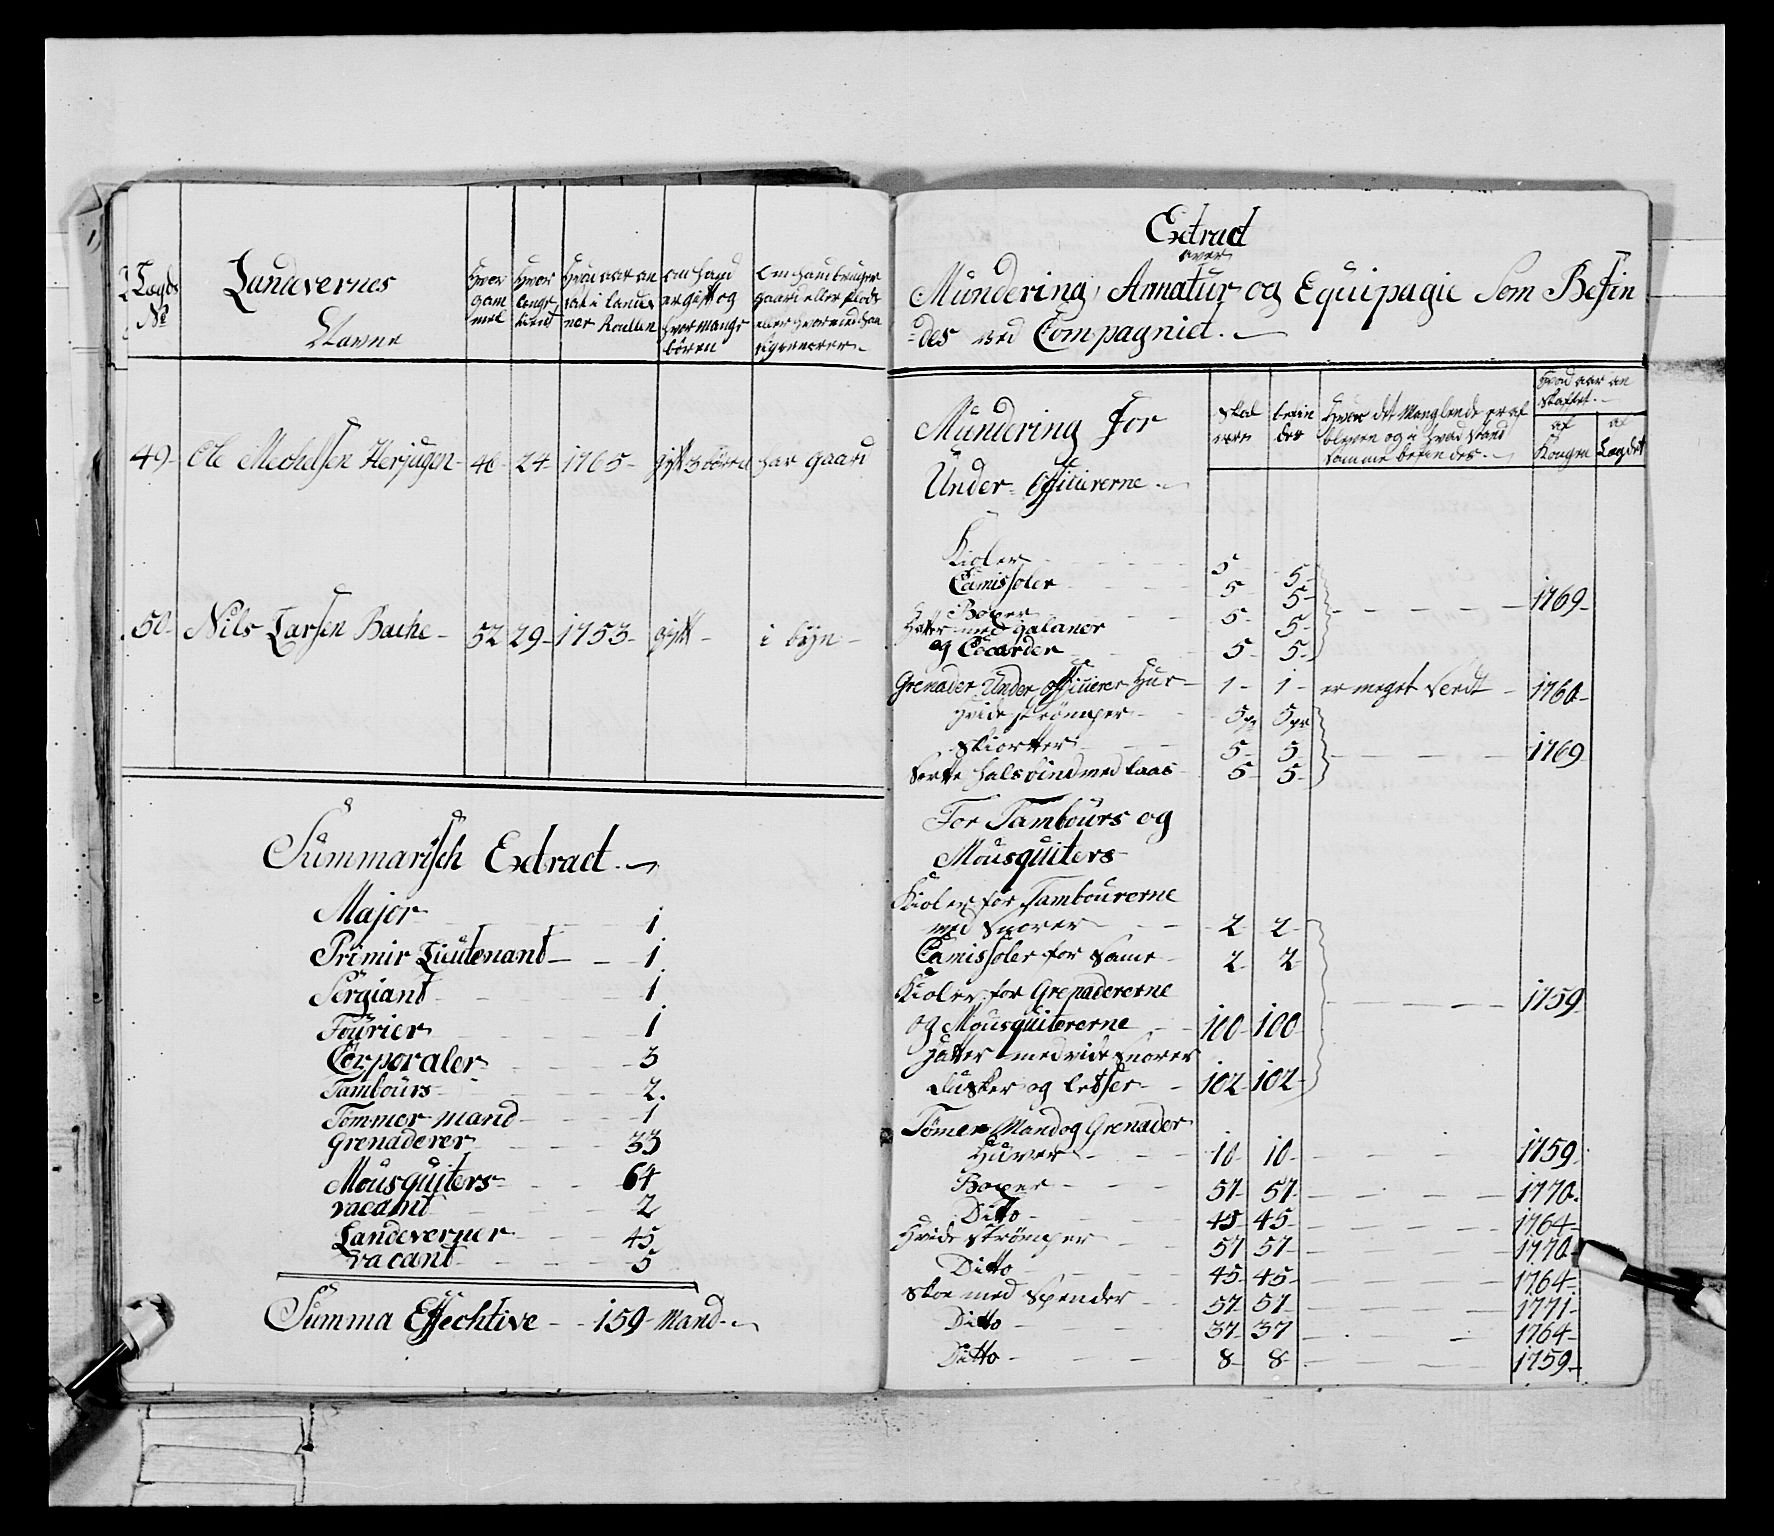 Lægds
No
Landvernes
Navne
Hvor
gam
mel
Hvor
længe
tient
Hvad aar an
tat i Landv
ner Roullen
om hand
er gift og
hvor mange
börn
Om hand bruger
gaard eller
eller hvormed han
sig ernerer
49- Ole Mechelsen Herjugen- 46- 24- 1765- gift 3 börn har gaard
50- Nils Larsen Bache- 52 29- 1753- gift- i byn-
Summarisch Extract.
Major 1
Primir Lieutenant 1
Sergiant 1
Fourier 1
Corporaler 3
Tambours 2.
Tömmer mand 1
Grenaderer 33
Mousquiters 64
vacant 2
Landeverner 45
vacant 5
Summa Effechtive - 159 Mand
Extract
over
Mundering, Armatur og Equipagie Som Befin
des ved Compagniet.
Mundering for
Under Officiererne
Skal
være
befin
des
Hvor det Manglende er af
bleven og i hvad stand
samme befindes.
Hvad aar an
skaffet.
af
Kongen
af
Lægdet
Kioler 5 5
Camissoler 5 5
Boxer 5 5 1769
Hatter med galaner
og Cocarder 5 5
Grenader Under Officierer Hue 1 1 er meget slendt 1760
Hvide strömper 5 pr 5 pr
Skiorter 5 5 1769
Sorte halsbind med laas 5 5
For Tambours og
Mousquiters
Kioler for Tambourerne
med Snorer 2 2
Camissoler for Same 2 2
Kioler for Grenadererne 1759
og Mousquitererne 100 100
Hatter med vide Snorer
Dusker og letser 102 102
Tömer Mand og Grenader
Huver 10 10 1759
Boxer 57 57 1770
Ditto 45 45 1764
Hvide Strömper 57 57 1770
Ditto 45 45 1764
Skoe med Spender 57 57 1771
Ditto 37 37 1764
Ditto 8 8 1759